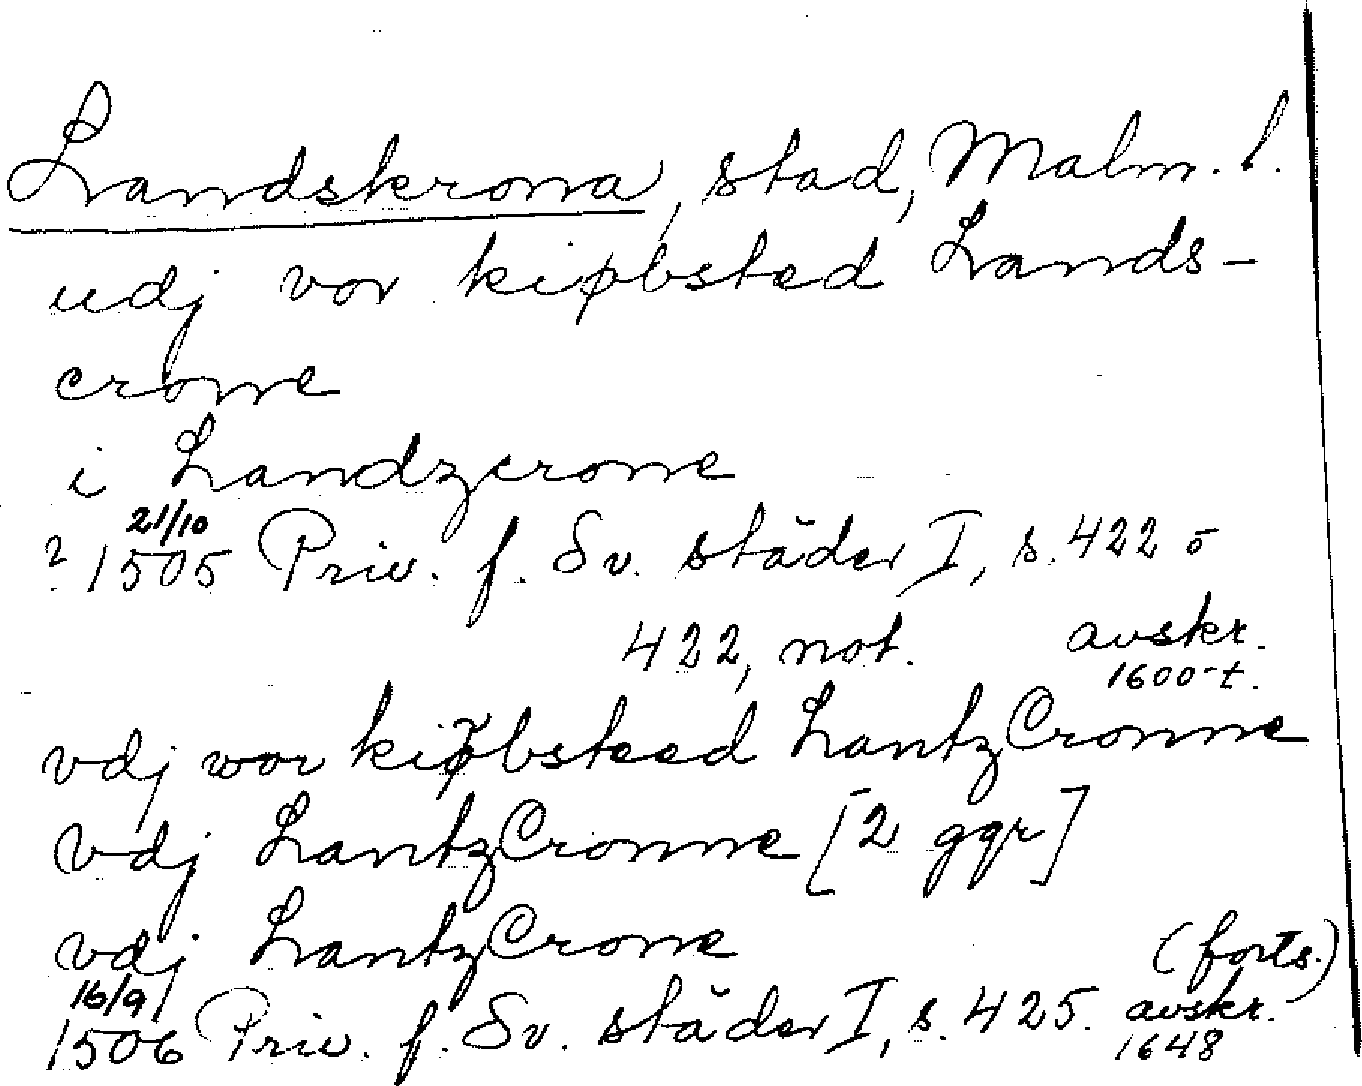 Landskrona, stad, Malm. l.
udj vor kiøbsted Lands-
crone
i Landzcrone
21/10
? 1505 Priv. f. Sv. städer I, s. 422 o
422, not. avskr.
1600-t.
vdj wor kiø̆bsteed LantzCronne
vdj LantzCronne [2 ggr]
vdj LantzCrone (forts.)
16/9
1506 Priv. f. Sv. städer I, s. 425. avskr.
1648